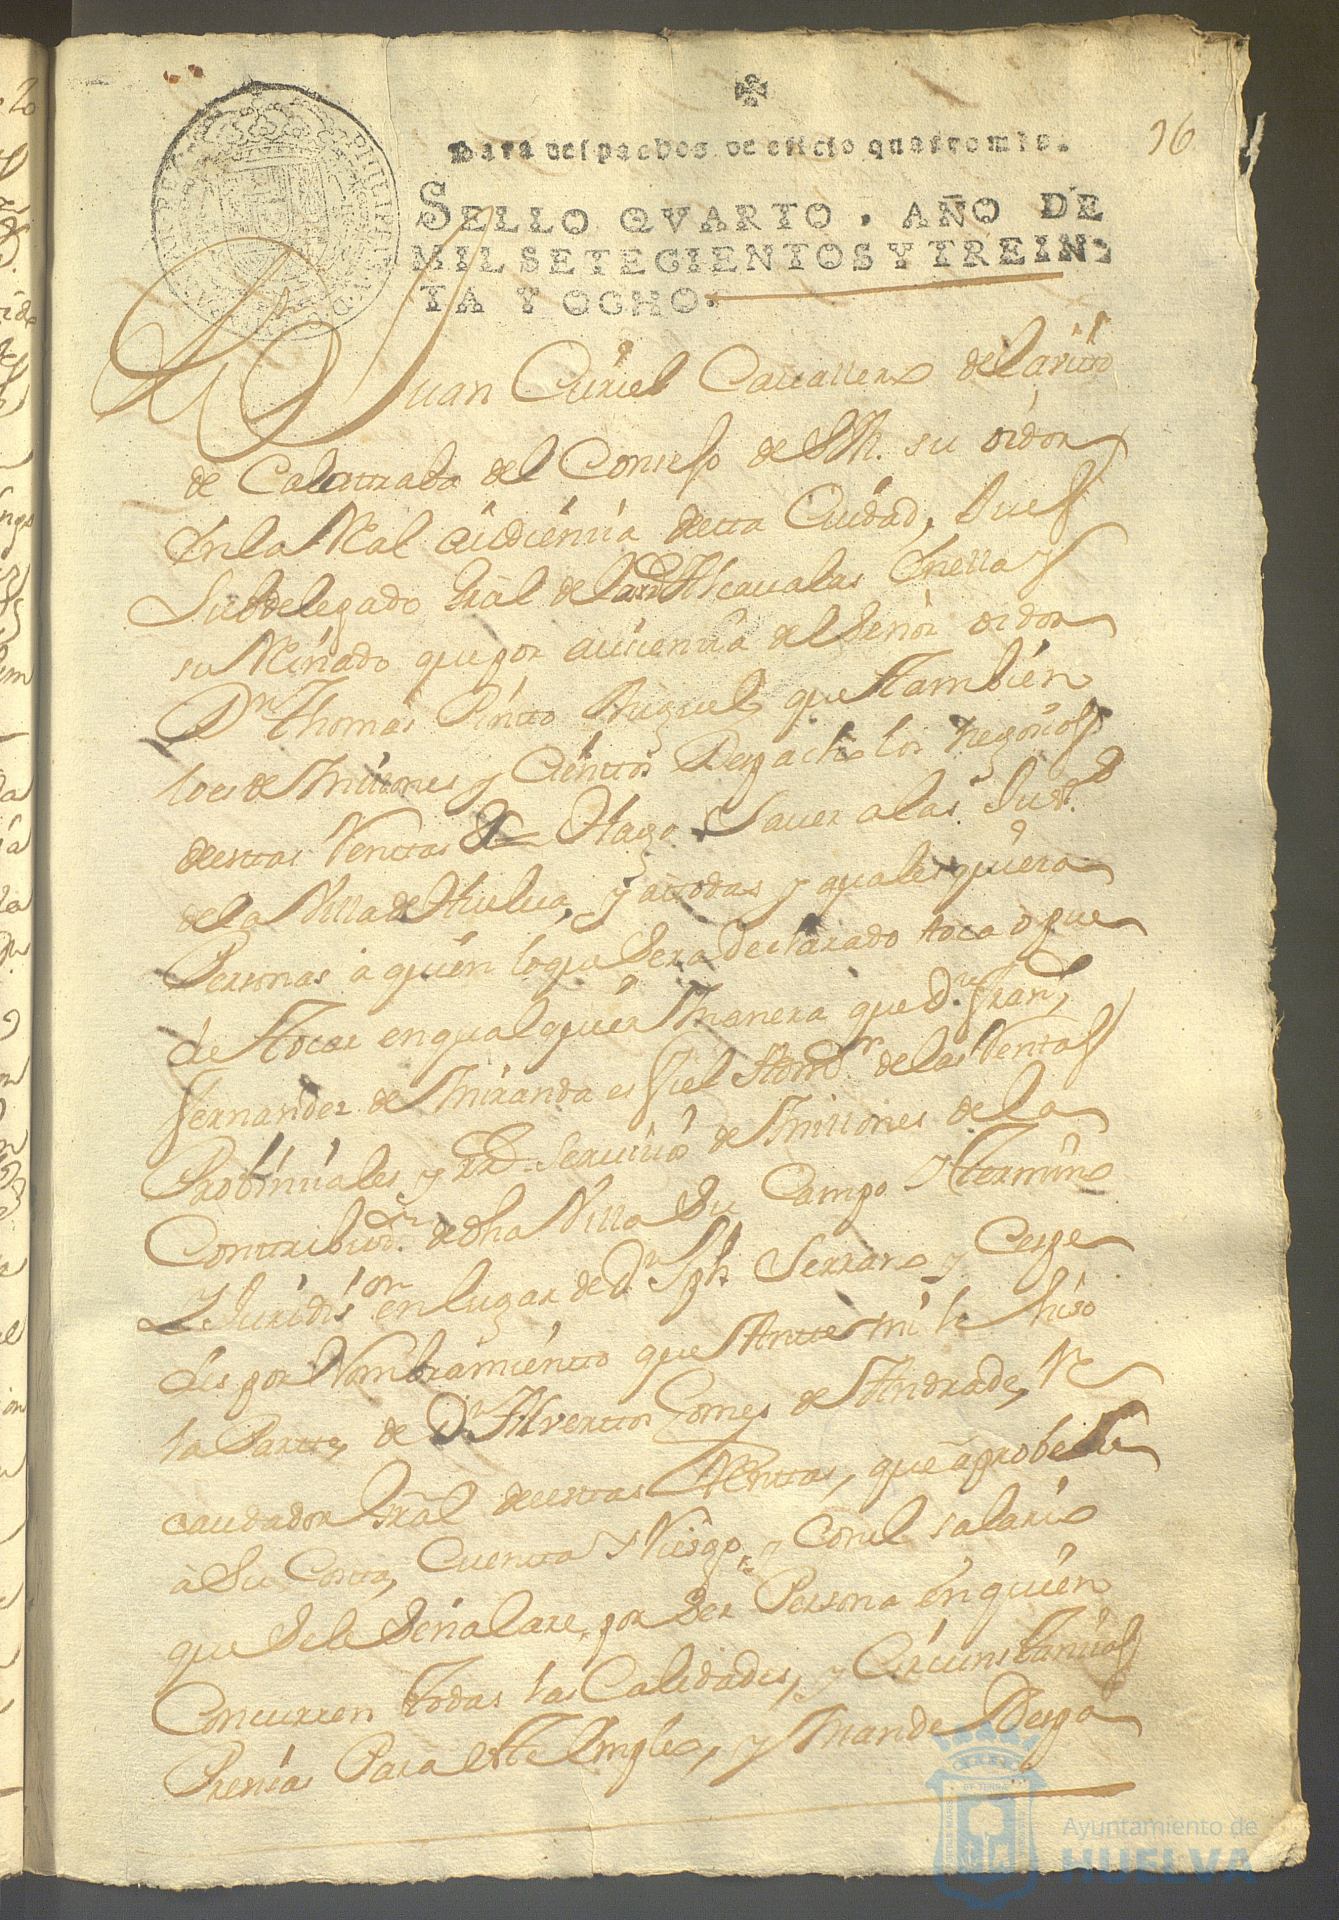 16
Para despachos de oficio quatro mrs.
SELLO QVARTO, AÑO DE
MIL SETECIENTOS Y TREIN-
TA Y OCHO.
Dn Juan Curiel Cauallero del a
de Calatraba del Consejo de S.M. su oidor
En la Real Audiencia desta Ciudad, Juez
Subdelegado Gral de las Rs Alcaualas En ella y
su Reinado que por ausencia del Señor oidor
Dn Thomas Pintto Miguel que tambien
lo es de Millones y Cienttos Despacho los negocios
destas Renttas &c Hago Sauer a las Justas
de la Villa de Huelua, y a todas y qualesquiera
Personas a quien lo que sera declarado toca o pue
de tocar en qualquier manera que Dn Franco
Fernandez de Miranda es fiel Admor de las Rentas
Probinciales y Rs Seruicios de Millones de la
Contribuon de dha Villa Su Campo y termino
y Juridision en lugar de Dn Jph Serrano y Cespe
des por Nombramientto que Antte mi le hiso
la Partte de Dn Alvertto Gomez de Andrade, Re
caudador Gral destas Renttas, que aprobe Su
a Su Costta, Cuentta y Riesgo y Con el salario
que Se le Señalare, por Ser Persona en quien
Concurren todas las Calidades, y Circunstancias
Presias Para este Empleo, y Mande Despa
Ayuntamiento de
HUELVA